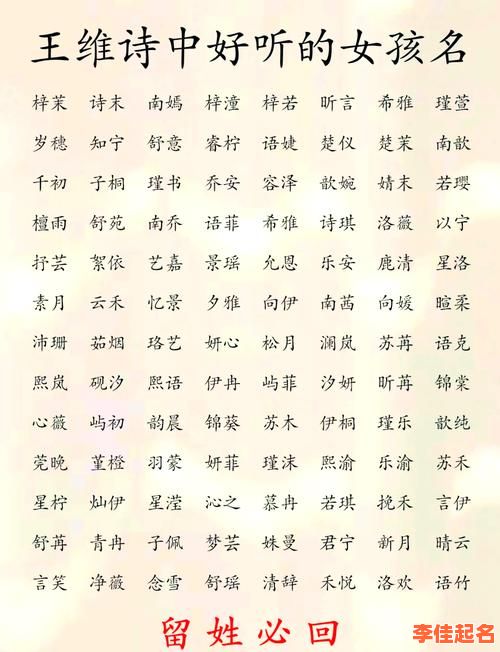 王维诗中好听的女孩名
梓茉 诗末 南嫣 梓潼 梓若 昕言 希雅 瑾萱
岁穗 知宁 舒意 睿柠 语婕 楚仪 楚茉 南歆
千初 子桐 瑾书 乔安 容泽 歆婉 婧末 若璎
檀雨 舒苑 南乔 语菲 希雅 诗琪 洛薇 以宁
抒芸 絮依 艺嘉 景瑶 允恩 乐安 鹿清 星洛
素月 云禾 忆景 夕雅 向伊 南茜 向媛 暄柔
沛珊 茹烟 珞艺 妍心 松月 澜岚 苏苒 语克
熙岚 砚汐 熙语 伊冉 屿菲 汐妍 昕苒 锦棠
心薇 屿初 韵晨 锦葵 苏木 伊桐 瑾乐 歆纯
莞晚 堇橙 羽蒙 妍菲 瑾沫 熙渝 乐渝 苏禾
星柠 灿伊 星滢 沁之 慕冉 若琪 挽禾 言伊
舒苒 青冉 子佩 梦芸 姝曼 君宁 新月 晴云
言笑 净薇 念雪 舒瑶 清辞 禾悦 洛欢 语竹
留姓必回
李佳起名